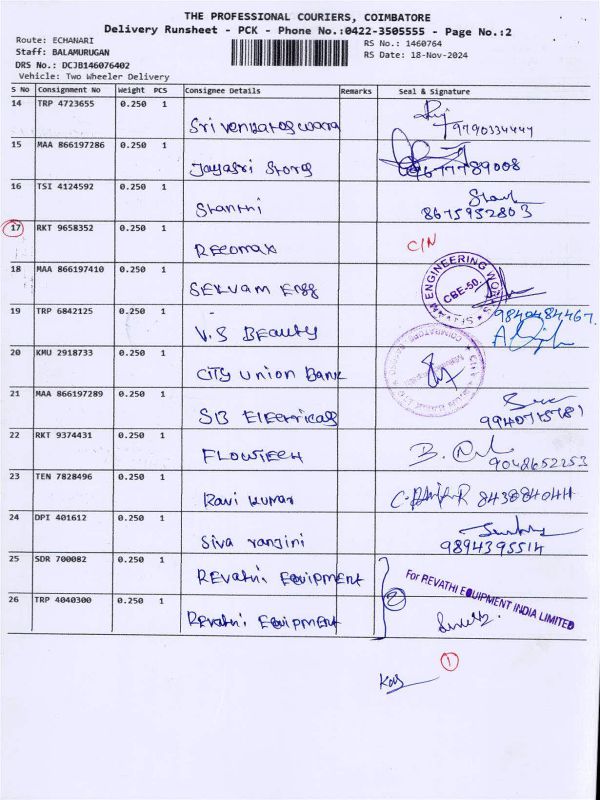 THE PROFESSIONAL COURIERS, COIMBATORE
Delivery Runsheet - PCK - Phone No.:0422-3505555 - Page No.:2
Route: ECHANARI
RS No.: 1460764
Staff: BALAMURUGAN
RS Date: 18-Nov-2024
DRS No.: DCJB146076402
Vehicle: Two Wheeler Delivery
S No Consignment No Weight PCS Consignee Details Remarks Seal & Signature
14 TRP 4723655 0.250 1 9790334447
15 MAA 866197286 0.250 1 Jayasri Stores
16 TSI 4124592 0.250 1 Shanthi 8675952803
17 RKT 9658352 0.250 1 RECOMAX C/N
18 MAA 866197410 0.250 1 SELVAM Engg ENGINEERING WORKS CBE-50
19 TRP 6842125 0.250 1 V.S BEAUTY 9840484467.
20 KMU 2918733 0.250 1 CITY Union Bank
21 MAA 866197289 0.250 1 SB Electricals
22 RKT 9374431 0.250 1 FLOWTECH 9042652253
23 TEN 7828496 0.250 1 Ravi kumar
24 DPI 401612 0.250 1 Siva ranjini 9894395514
25 SDR 700082 0.250 1 REvathi EQUIPMENT For REVATHI EQUIPMENT INDIA LIMITED
26 TRP 4040300 0.250 1 REvathi EQUIPMENT 2
1